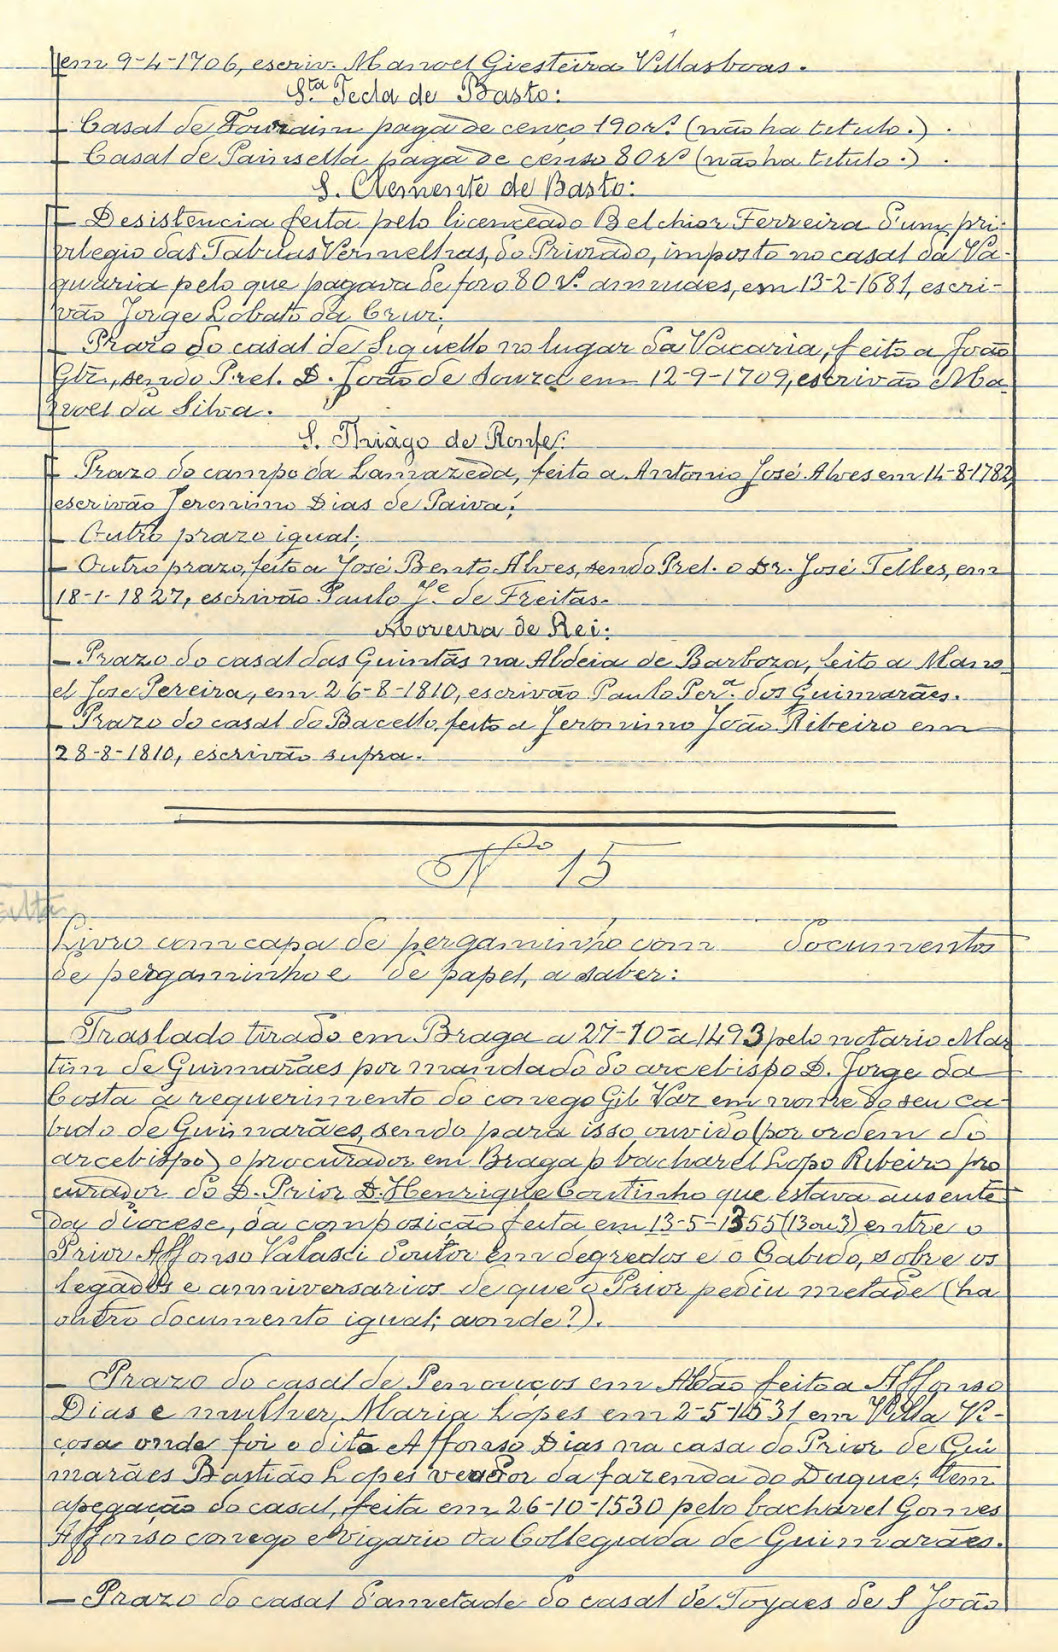 em 9-4-1706, escriv. Manoel Giesteira Villasboas.
Sta Tecla de Basto:
– Casal de Touraim paga de cenço 190 rs. (não ha titulo.) .
– Casal de Painsella paga de censo 80 rs (não ha titulo.) .
S. Clemente de Basto:
– Desistencia feita pelo licenceado Belchior Ferreira d'um pri-
vilegio das Tabuas Vermelhas, do Priorado, imposto no casal da Va-
quaria pelo que pagava de foro 80 rs. annuaes, em 13-2-1681, escri-
vão Jorge Lobato da Cruz;
– Prazo do casal de Siquello no lugar da Vacaria, feito a João
Glz, sendo Prel. D. João de Souza em 12-9-1709, escrivão Ma-
noel da Silva.
S. Thiago de Ronfe:
– Prazo do campo da Lamazeda, feito a Antonio José Alves em 14-8-1782,
escrivão Jeronimo Dias de Paiva;
– Outro prazo igual;
– Outro prazo, feito a José Bento Alves, sendo Prel. o Dr. José Telles, em
18-1-1827, escrivão Paulo J.e de Freitas.
Moreira de Rei:
– Prazo do casal das Quintãs na Aldeia de Barboza, feito a Mano-
el José Pereira, em 26-8-1810, escrivão Paulo Per.a dos Guimarães.
– Prazo do casal do Bacello, feito a Jeronimo João Ribeiro em
28-8-1810, escrivão supra.
No 15
Livro com capa de pergaminho com documentos
de pergaminho e de papel, a saber:
– Traslado tirado em Braga a 27-10-a 1493 pelo notario Mar
tim de Guimarães por mandado do arcebispo D. Jorge da
Costa a requerimento do conego Gil Vaz em nome do seu ca-
bido de Guimarães, sendo para isso ouvido (por ordem do
arcebispo) o procurador em Braga p bacharel Lopo Ribeiro pro
curador do D. Prior D. Henrique Coutinho que estava ausente
da diocese, da composição feita em 13-5-1355 (13 ou 3) entre o
Prior Affonso Valasci doutor em degredos e o Cabido, sobre os
legados e anniversarios de que o Prior pediu metade (ha
outro documento igual; aonde?).
– Prazo do casal de Penouços em Aldão feito a Affonso
Dias e mulher Maria Lopes em 2-5-1531 em Villa Vi-
çosa onde foi o dito Affonso Dias na casa do Prior de Gui
marães Bastião Lopes veador da fazenda do Duque; tem
apegação do casal, feita em 26-10-1530 pelo bacharel Gomes
Affonso conego e vigario da Collegiada de Guimarães.
– Prazo do casal d'ametade do casal de Toyaes de S João